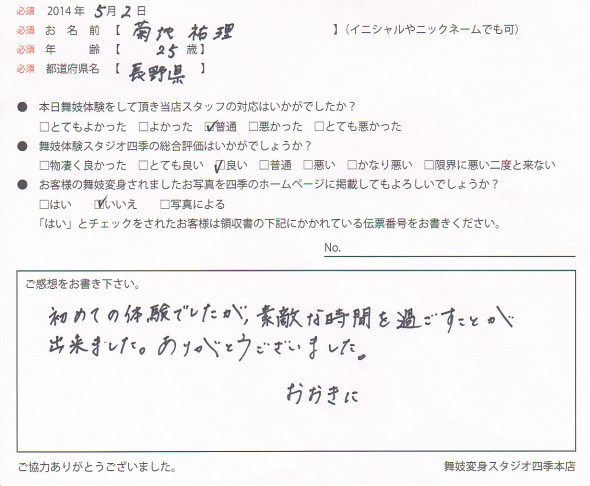 必須 2014 年 5月 2日
必須 お 名 前 【 菊地 祐理 】(イニシャルやニックネームでも可)
必須 年 齢 【 25 歳】
必須 都道府県名 【 長野県 】
● 本日舞妓体験をして頂き当店スタッフの対応はいかがでしたか?
□とてもよかった □よかった ☑普通 □悪かった □とても悪かった
● 舞妓体験スタジオ四季の総合評価はいかがでしょうか?
□物凄く良かった □とても良い ☑良い □普通 □悪い □かなり悪い □限界に悪い二度と来ない
● お客様の舞妓変身されましたお写真を四季のホームページに掲載してもよろしいでしょうか?
□はい ☑いいえ □写真による
「はい」とチェックをされたお客様は領収書の下記にかかれている伝票番号をお書きください。
No.
ご感想をお書き下さい。
初めての体験でしたが、素敵な時間を過ごすことが
出来ました。ありがとうございました。
おおきに
ご協力ありがとうございました。 舞妓変身スタジオ四季本店